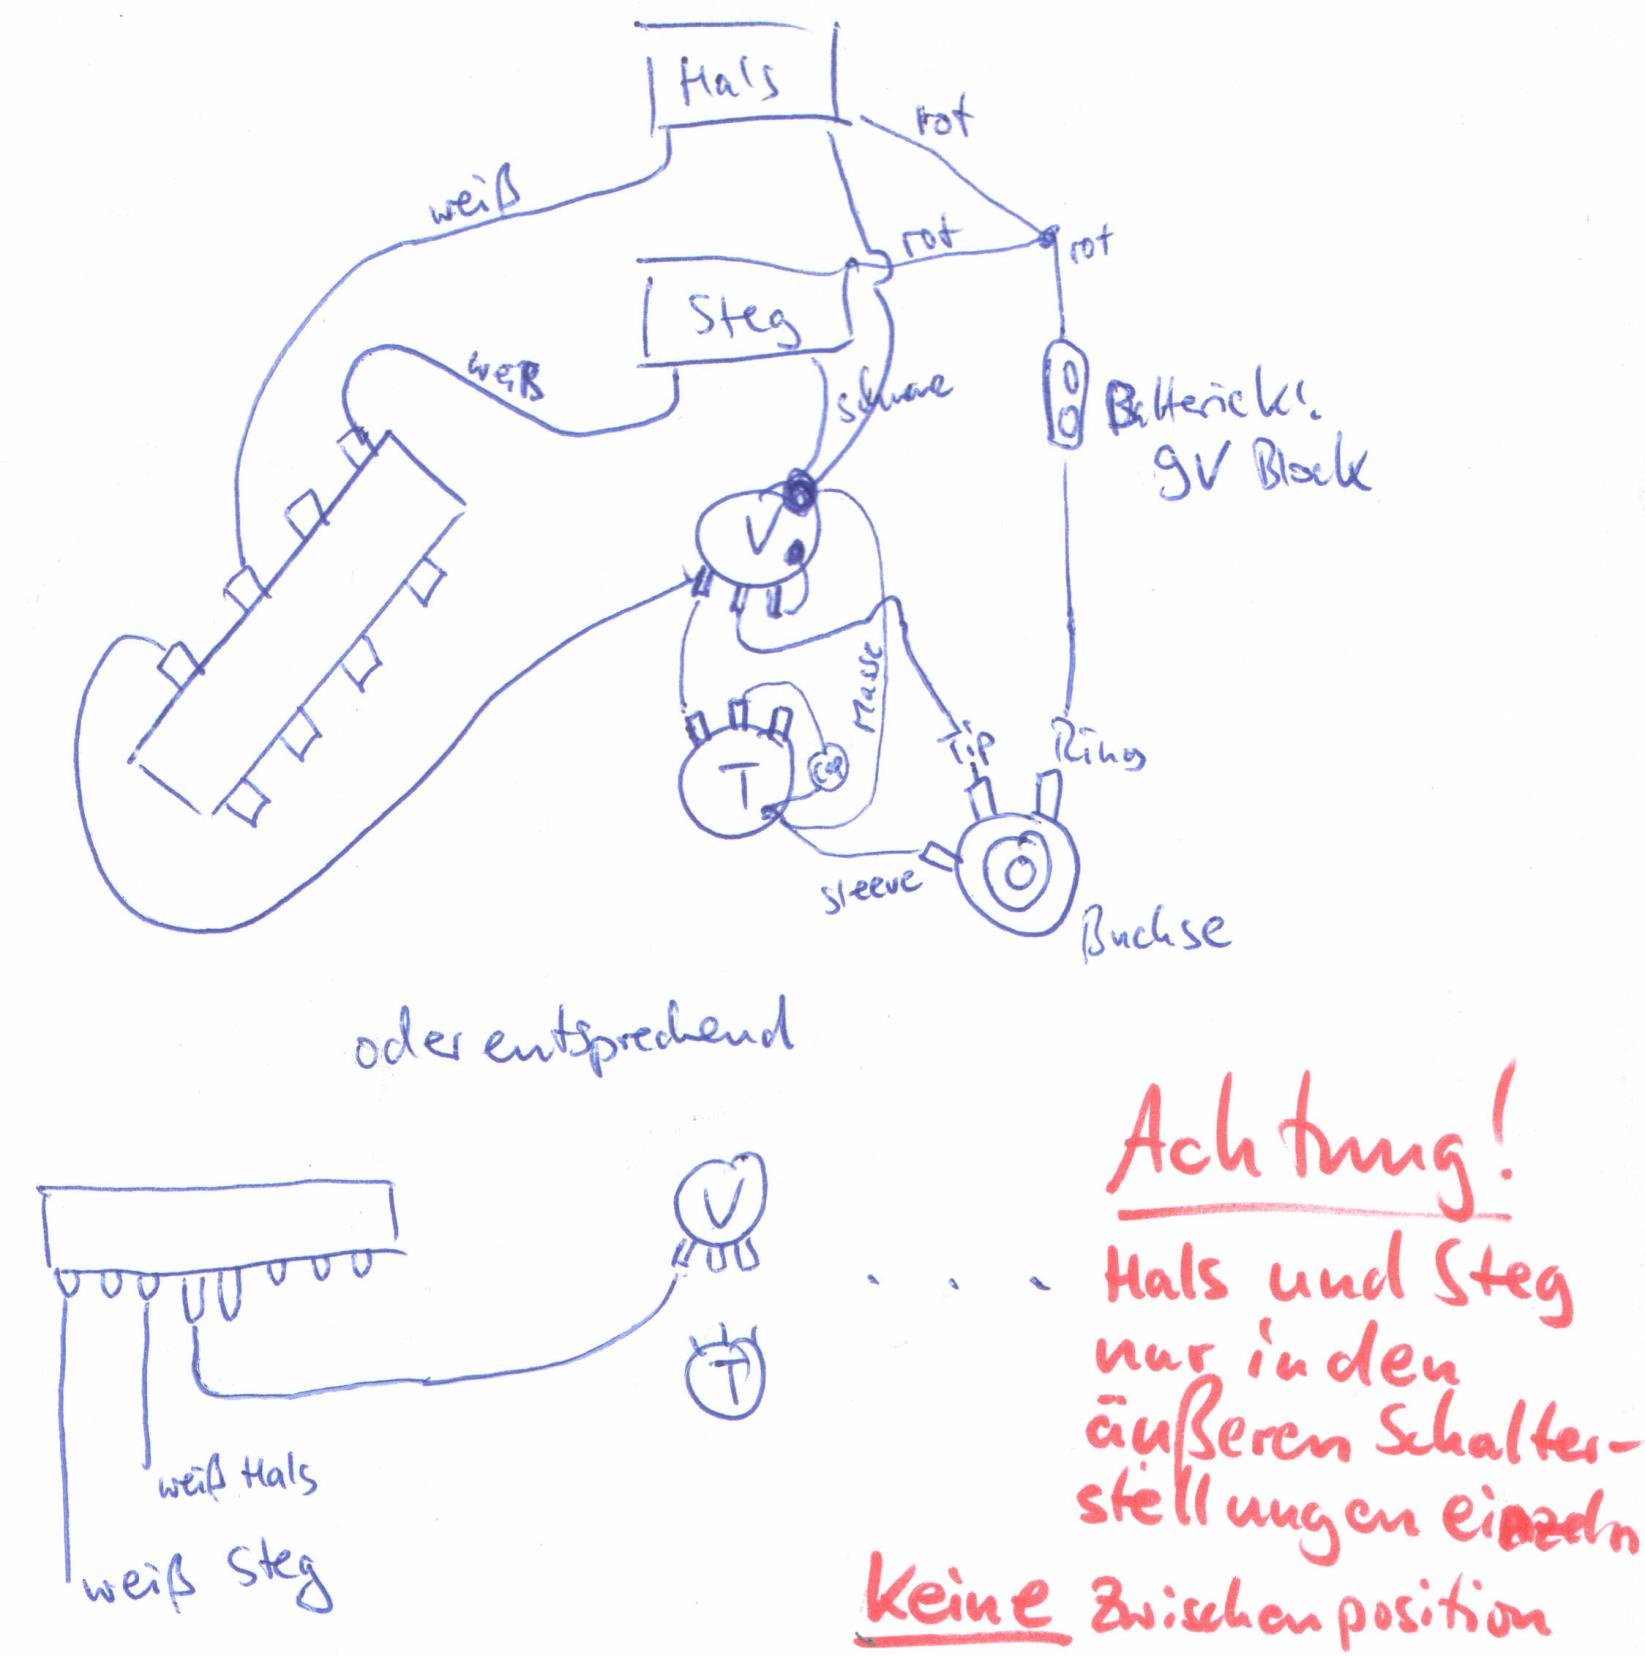 Hals
rot
weiß
rot
rot
Steg
weiß
Batterieckl.
9V Block
V
Masse
Tip
Ring
T
Cap
sleeve
Buchse
oder entsprechend
Achtung!
V
Hals und Steg
nur in den
T
äußeren Schalter-
stellungen einzeln
weiß Hals
weiß Steg
Keine Zwischenposition